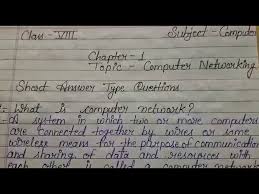 Class - VIII Subject - Computer
Chapter - 1
Topic - Computer Networking
Short Answer Type Questions
What is computer network?
A system in which two or more computers
are connected together by wires or some
wireless means for the purpose of communication
and sharing of data and resources with
each others is called a computer network